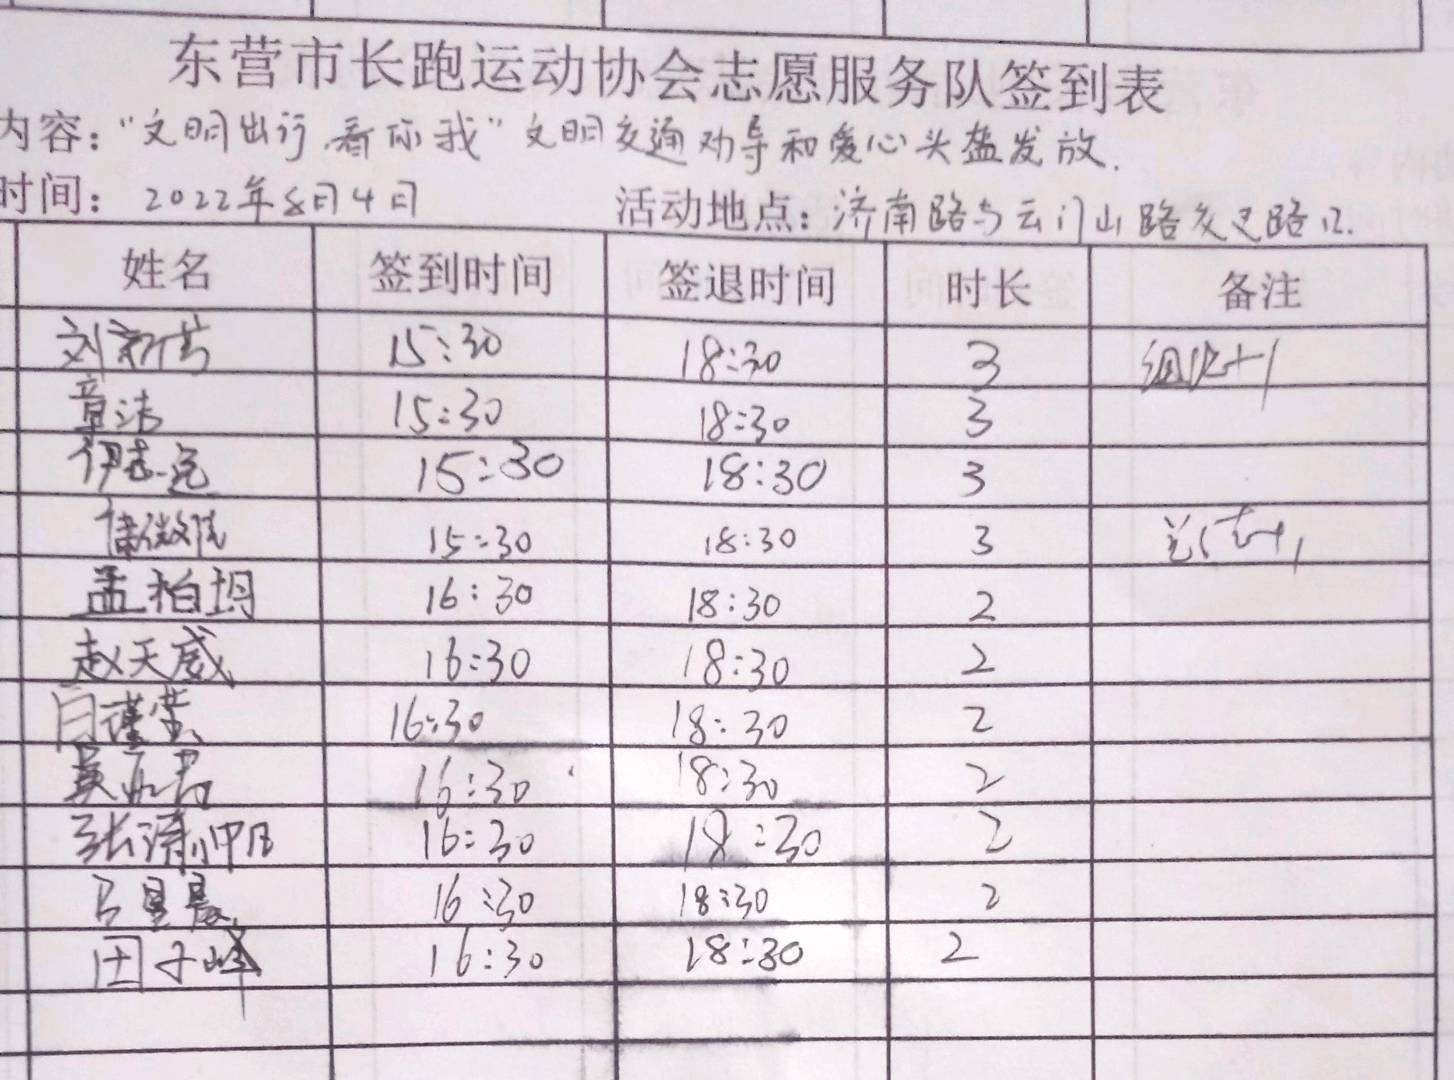 东营市长跑运动协会志愿服务队签到表
内容："文明出行,看你我"文明交通劝导和爱心头盔发放.
时间：2022年8月4日 活动地点：济南路与云门山路交叉路口.
姓名 签到时间 签退时间 时长 备注
15:30 18:30 3 组织+1
章洁 15:30 18:30 3
15:30 18:30 3
15:30 18:30 3
孟柏坍 16:30 18:30 2
赵天威 16:30 18:30 2
16:30 18:30 2
16:30 18:30 2
16:30 18:30 2
马星晨 16:30 18:30 2
田子峰 16:30 18:30 2